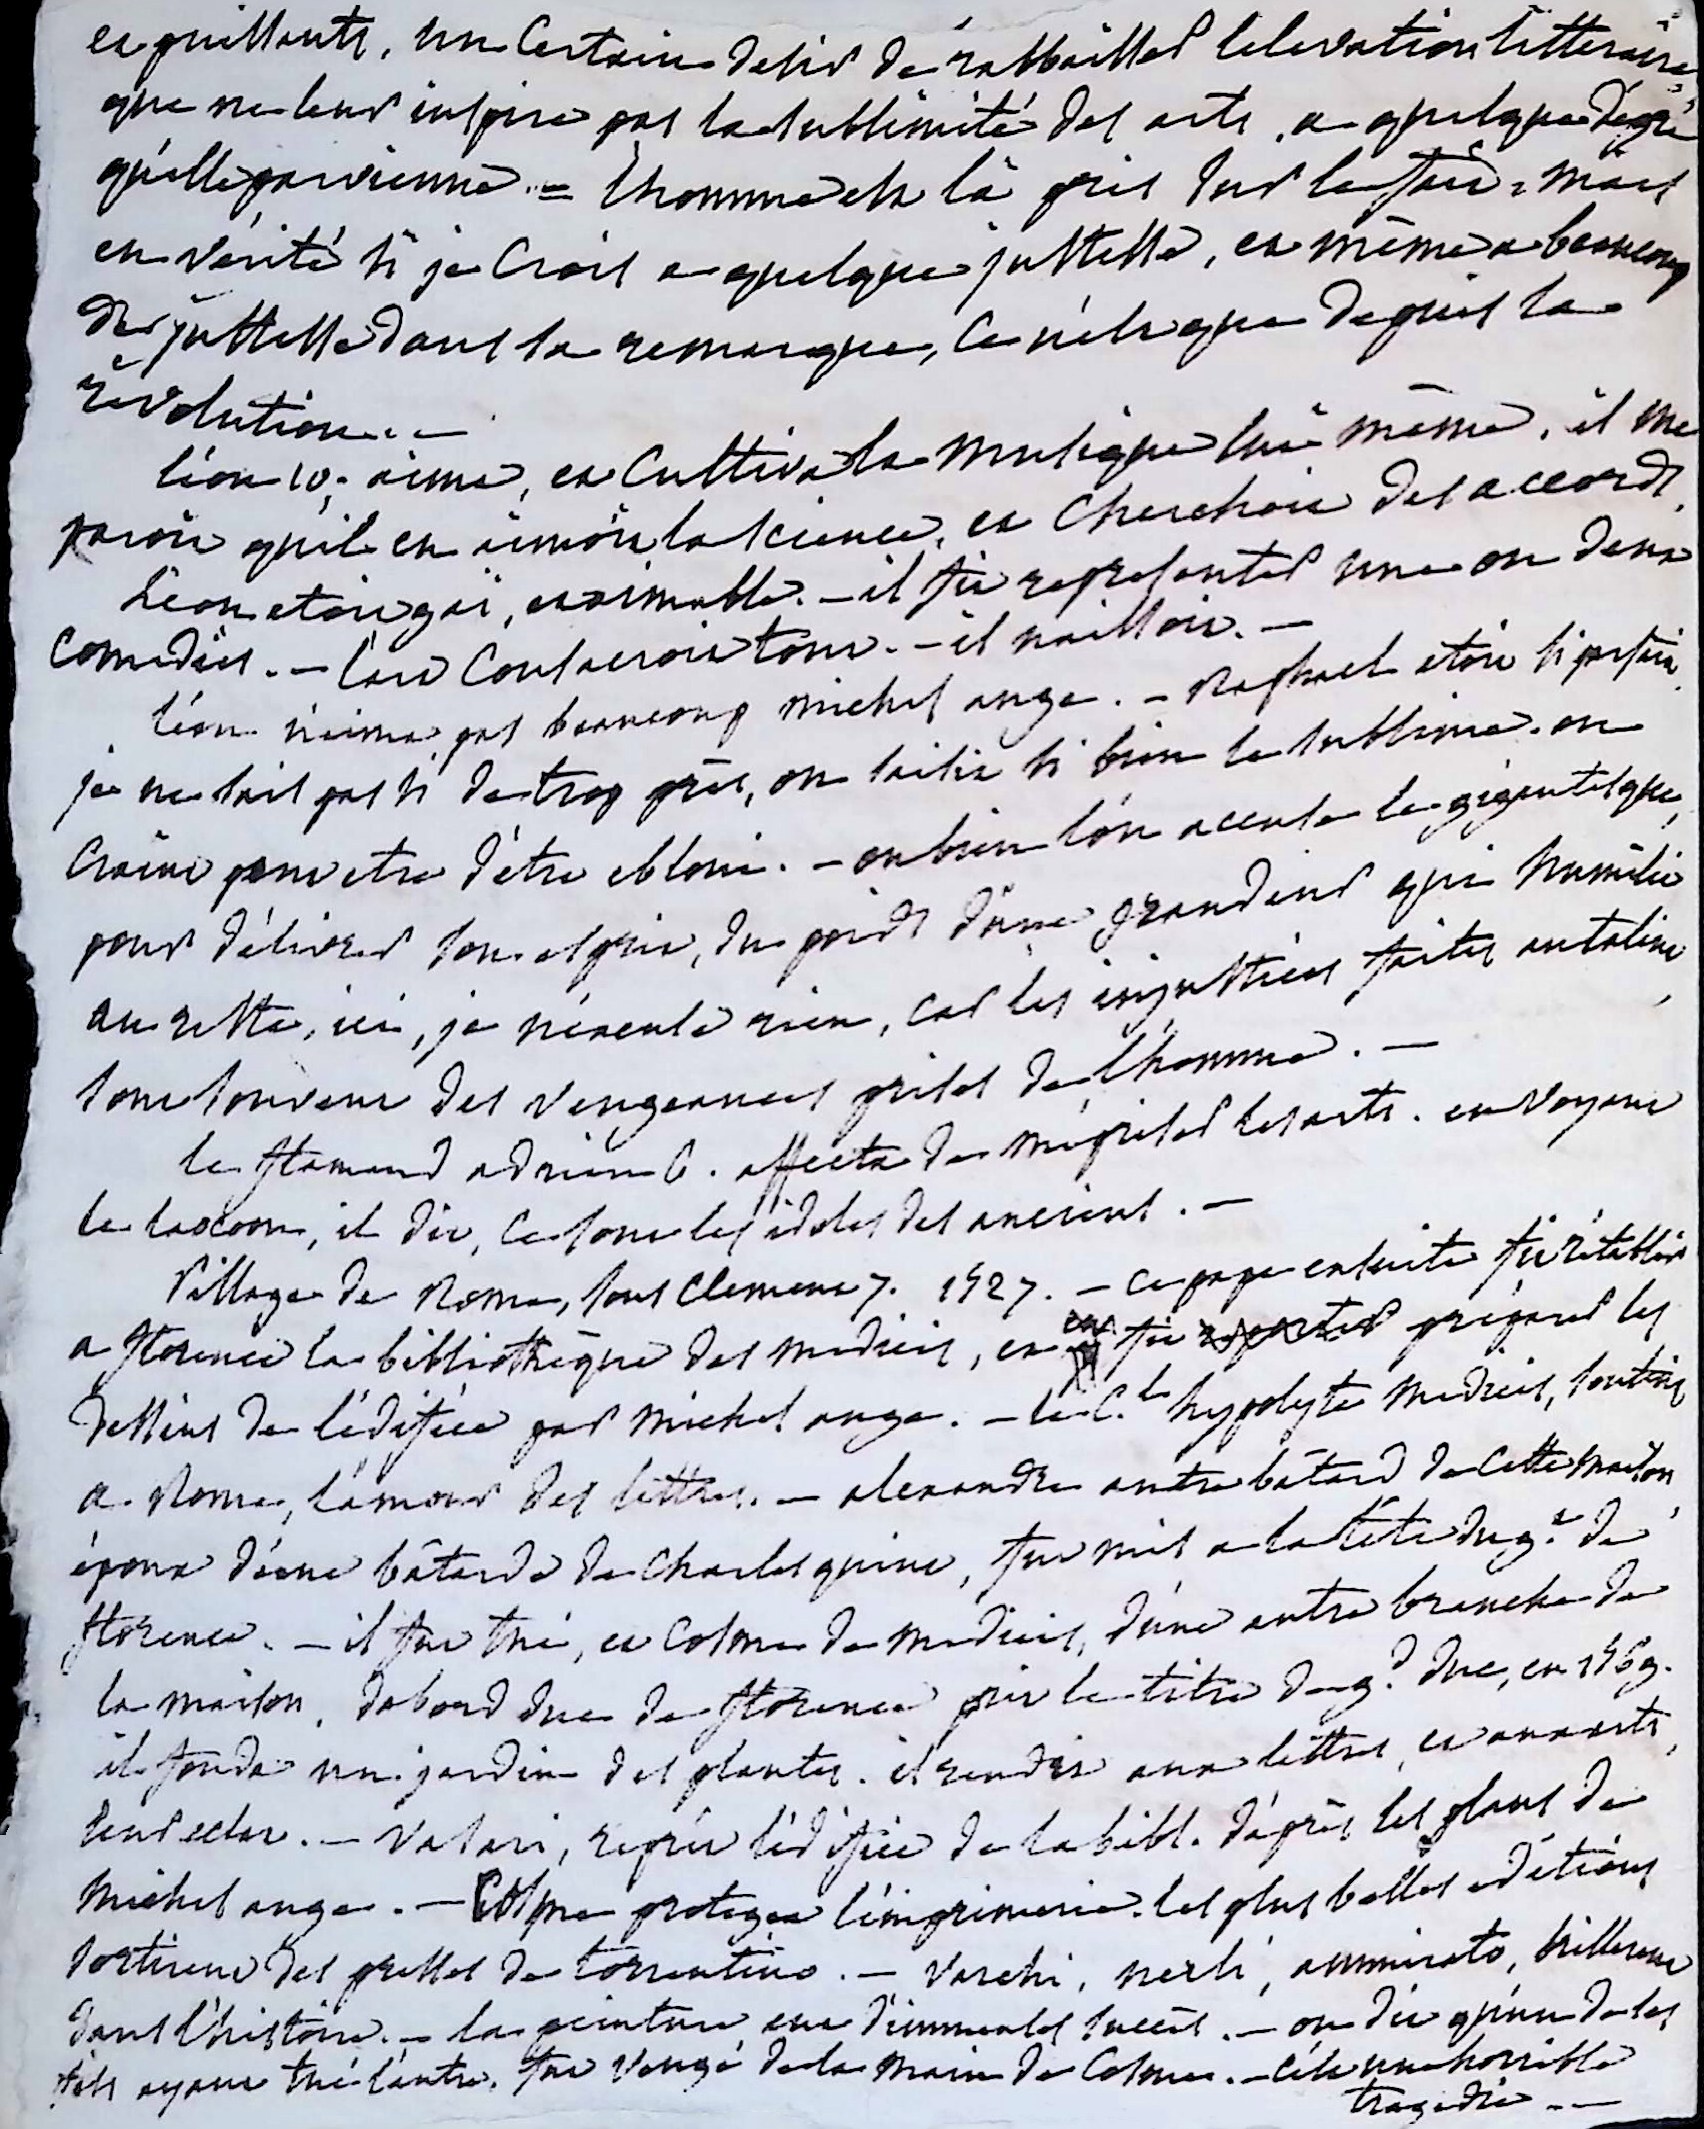 et puissants, un certain désir de rabbaisser l'elevation litteraire
que ne leur inspire pas la sublimité des arts, a quelque dégré
qu'elle parvienne. = l'homme est là pris sur le fait = mais
en vérité si je crois a quelque justesse, et même a beaucoup
de justesse dans la remarque, ce n'est que depuis la
révolution. –
léon 10. aima, et cultiva la musique lui même, il me
paroit qu'il en aimoit la science, et cherchoit des accords,
Léon etoit gai, et aimable. – il fit representer une ou deux
comedies. – l'art consacroit tout. – il naissoit. –
léon n'aima pas beaucoup michel ange. – Raphael etoit si parfait.
je ne sais pas si de trop près, on saisit si bien le sublime. on
craint peut etre d'être ebloui. – ou bien l'on accuse le gigantesque,
pour délivrer son esprit, du poids d'une grandeur qui humilie
au reste, ici, je n'excuse rien, car les injustices faites au talent,
sont souvent des vengeances prises de l'homme. –
le flamand adrien 6. affecta de mépriser les arts. en voyant
le laocoon, il dit, ce sont les idoles des anciens. –
Pillage de Rome, sous Clement 7. 1527. – ce pape ensuite fit rétablir
a florence la bibliothèque des medicis, et en fit préparer les
dessins de l'édifice par michel ange. – le C.al hypolyte medicis, soutint
a Rome, l'amour des lettres. – alexandre autre bâtard de cette maison,
époux d'une bâtarde de Charles quint, fut mis a la tête du g.t de
florence. – il fut tué, et Cosme de medicis, d'une autre branche de
la maison, d'abord duc de florence prit le titre de g.d duc, en 1569.
il fonda un jardin des plantes. il rendit aux lettres, et aux arts,
leur eclat. – Vasari, reprit l'édifice de la bibl. d'après les plans de
Michel ange. – Cosme protegea l'imprimerie. les plus belles editions
sortirent des presses de torrentino. – Varchi, nerli, ammirato, brillerent
dans l'histoire. – la peinture eut d'immenses succès. – on dit qu'un de ses
fils ayant tué l'autre, fut vengé de la main de Cosme. – c'est une horrible
tragedie. –